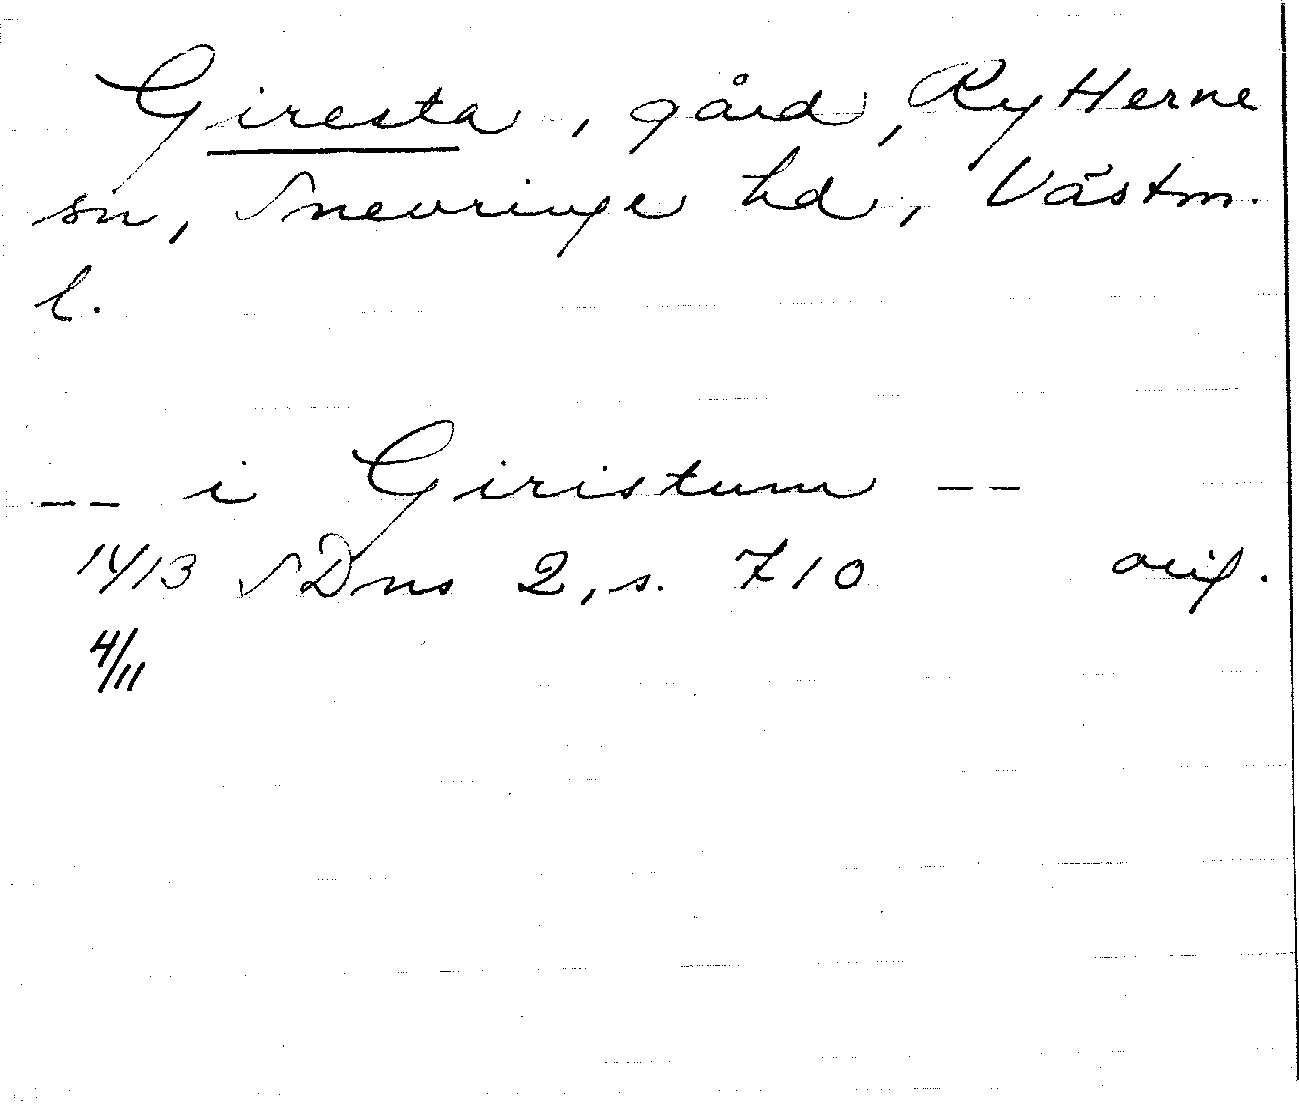 Giresta, gård, Rytterne
sn, Snevringe hd, Västm.
l.
-- i Giristum --
1413 SDns 2, s. 710 orig.
4/11